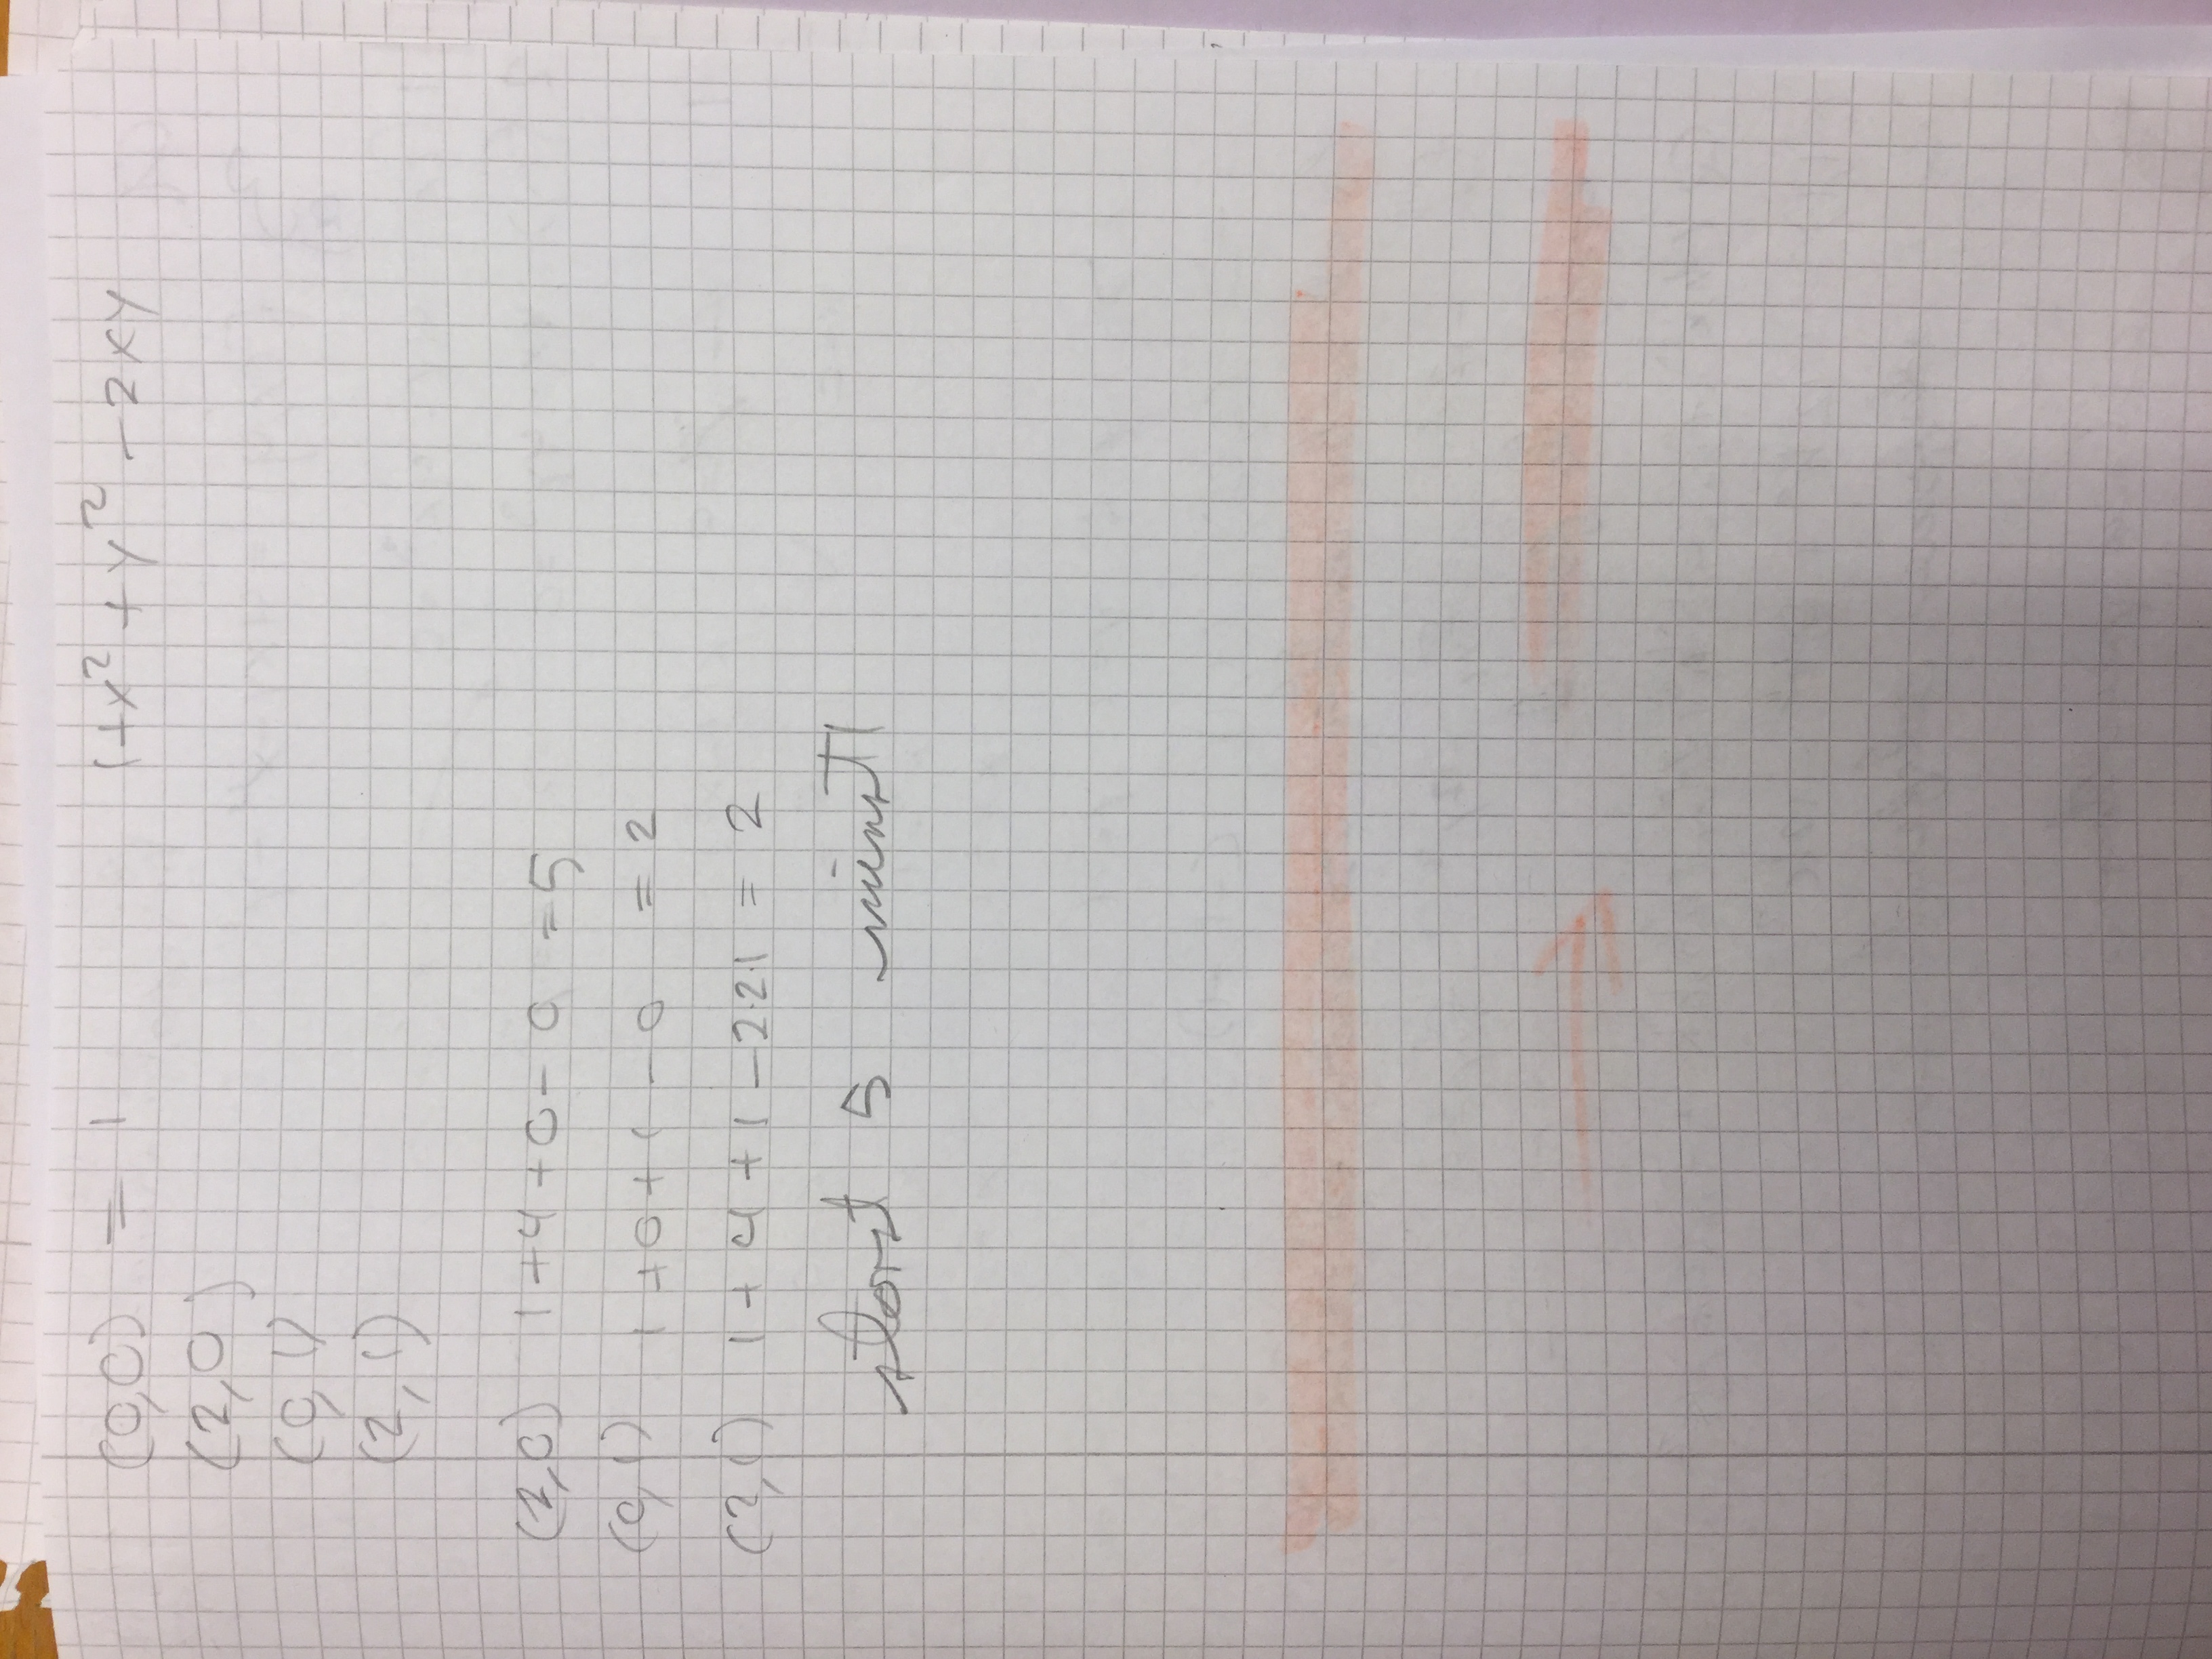 (0,0) = 1 1+x² + y² - 2xy
(2,0)
(0,1)
(2,1)
(2,0) 1+4+0-0 =5
(0,1) 1+0+1-0 = 2
(2,1) 1+4+1-2·2·1 = 2
störst 5 minst 1